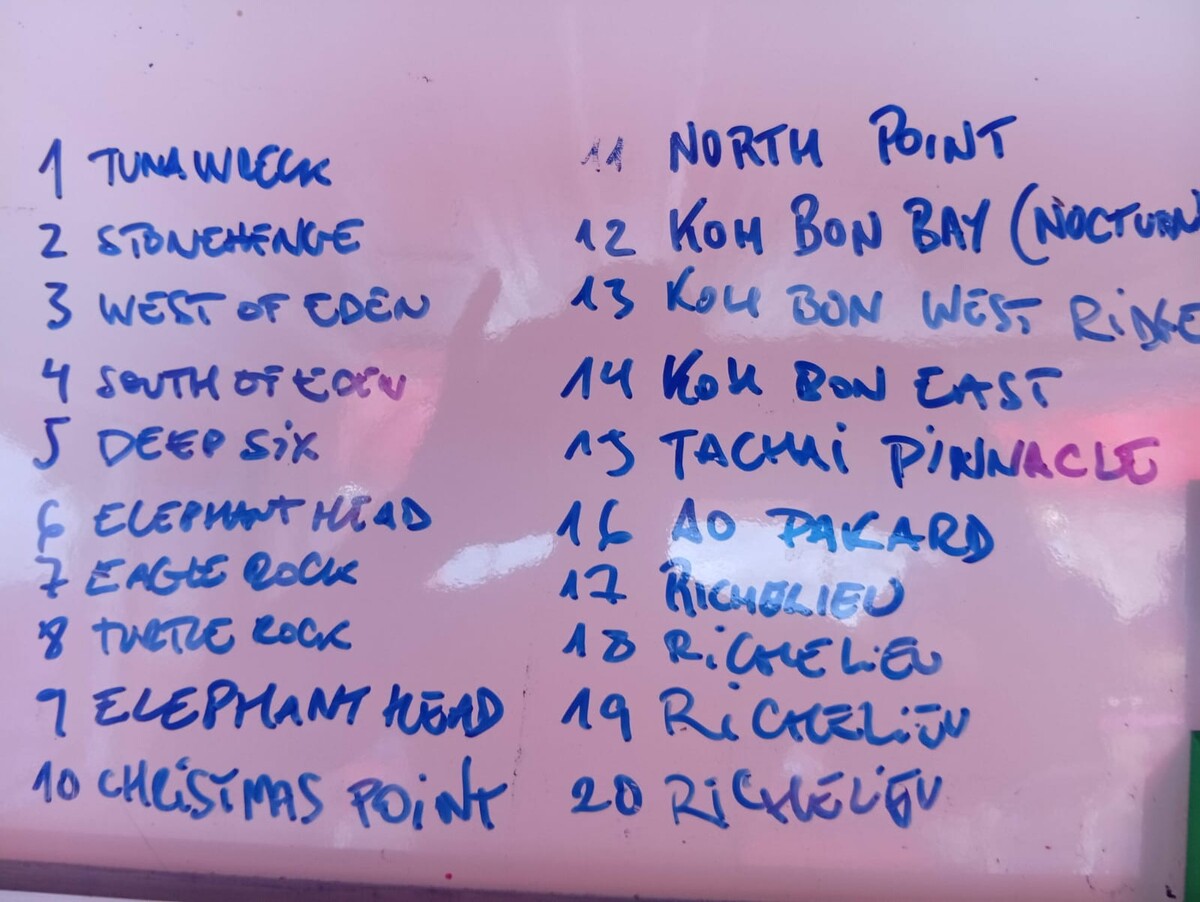 1 TUNA WRECK
2 STONEHENGE
3 WEST OF EDEN
4 SOUTH OF EDEN
5 DEEP SIX
6 ELEPHANT HEAD
7 EAGLE ROCK
8 TURTLE ROCK
9 ELEPHANT HEAD
10 CHRISTMAS POINT
11 NORTH POINT
12 KOH BON BAY (NOCTURN
13 KOH BON WEST RIDGE
14 KOH BON EAST
15 TACHAI PINNACLE
16 AO PAKARD
17 RICHELIEU
18 RICHELIEU
19 RICHELIEU
20 RICHELIEU